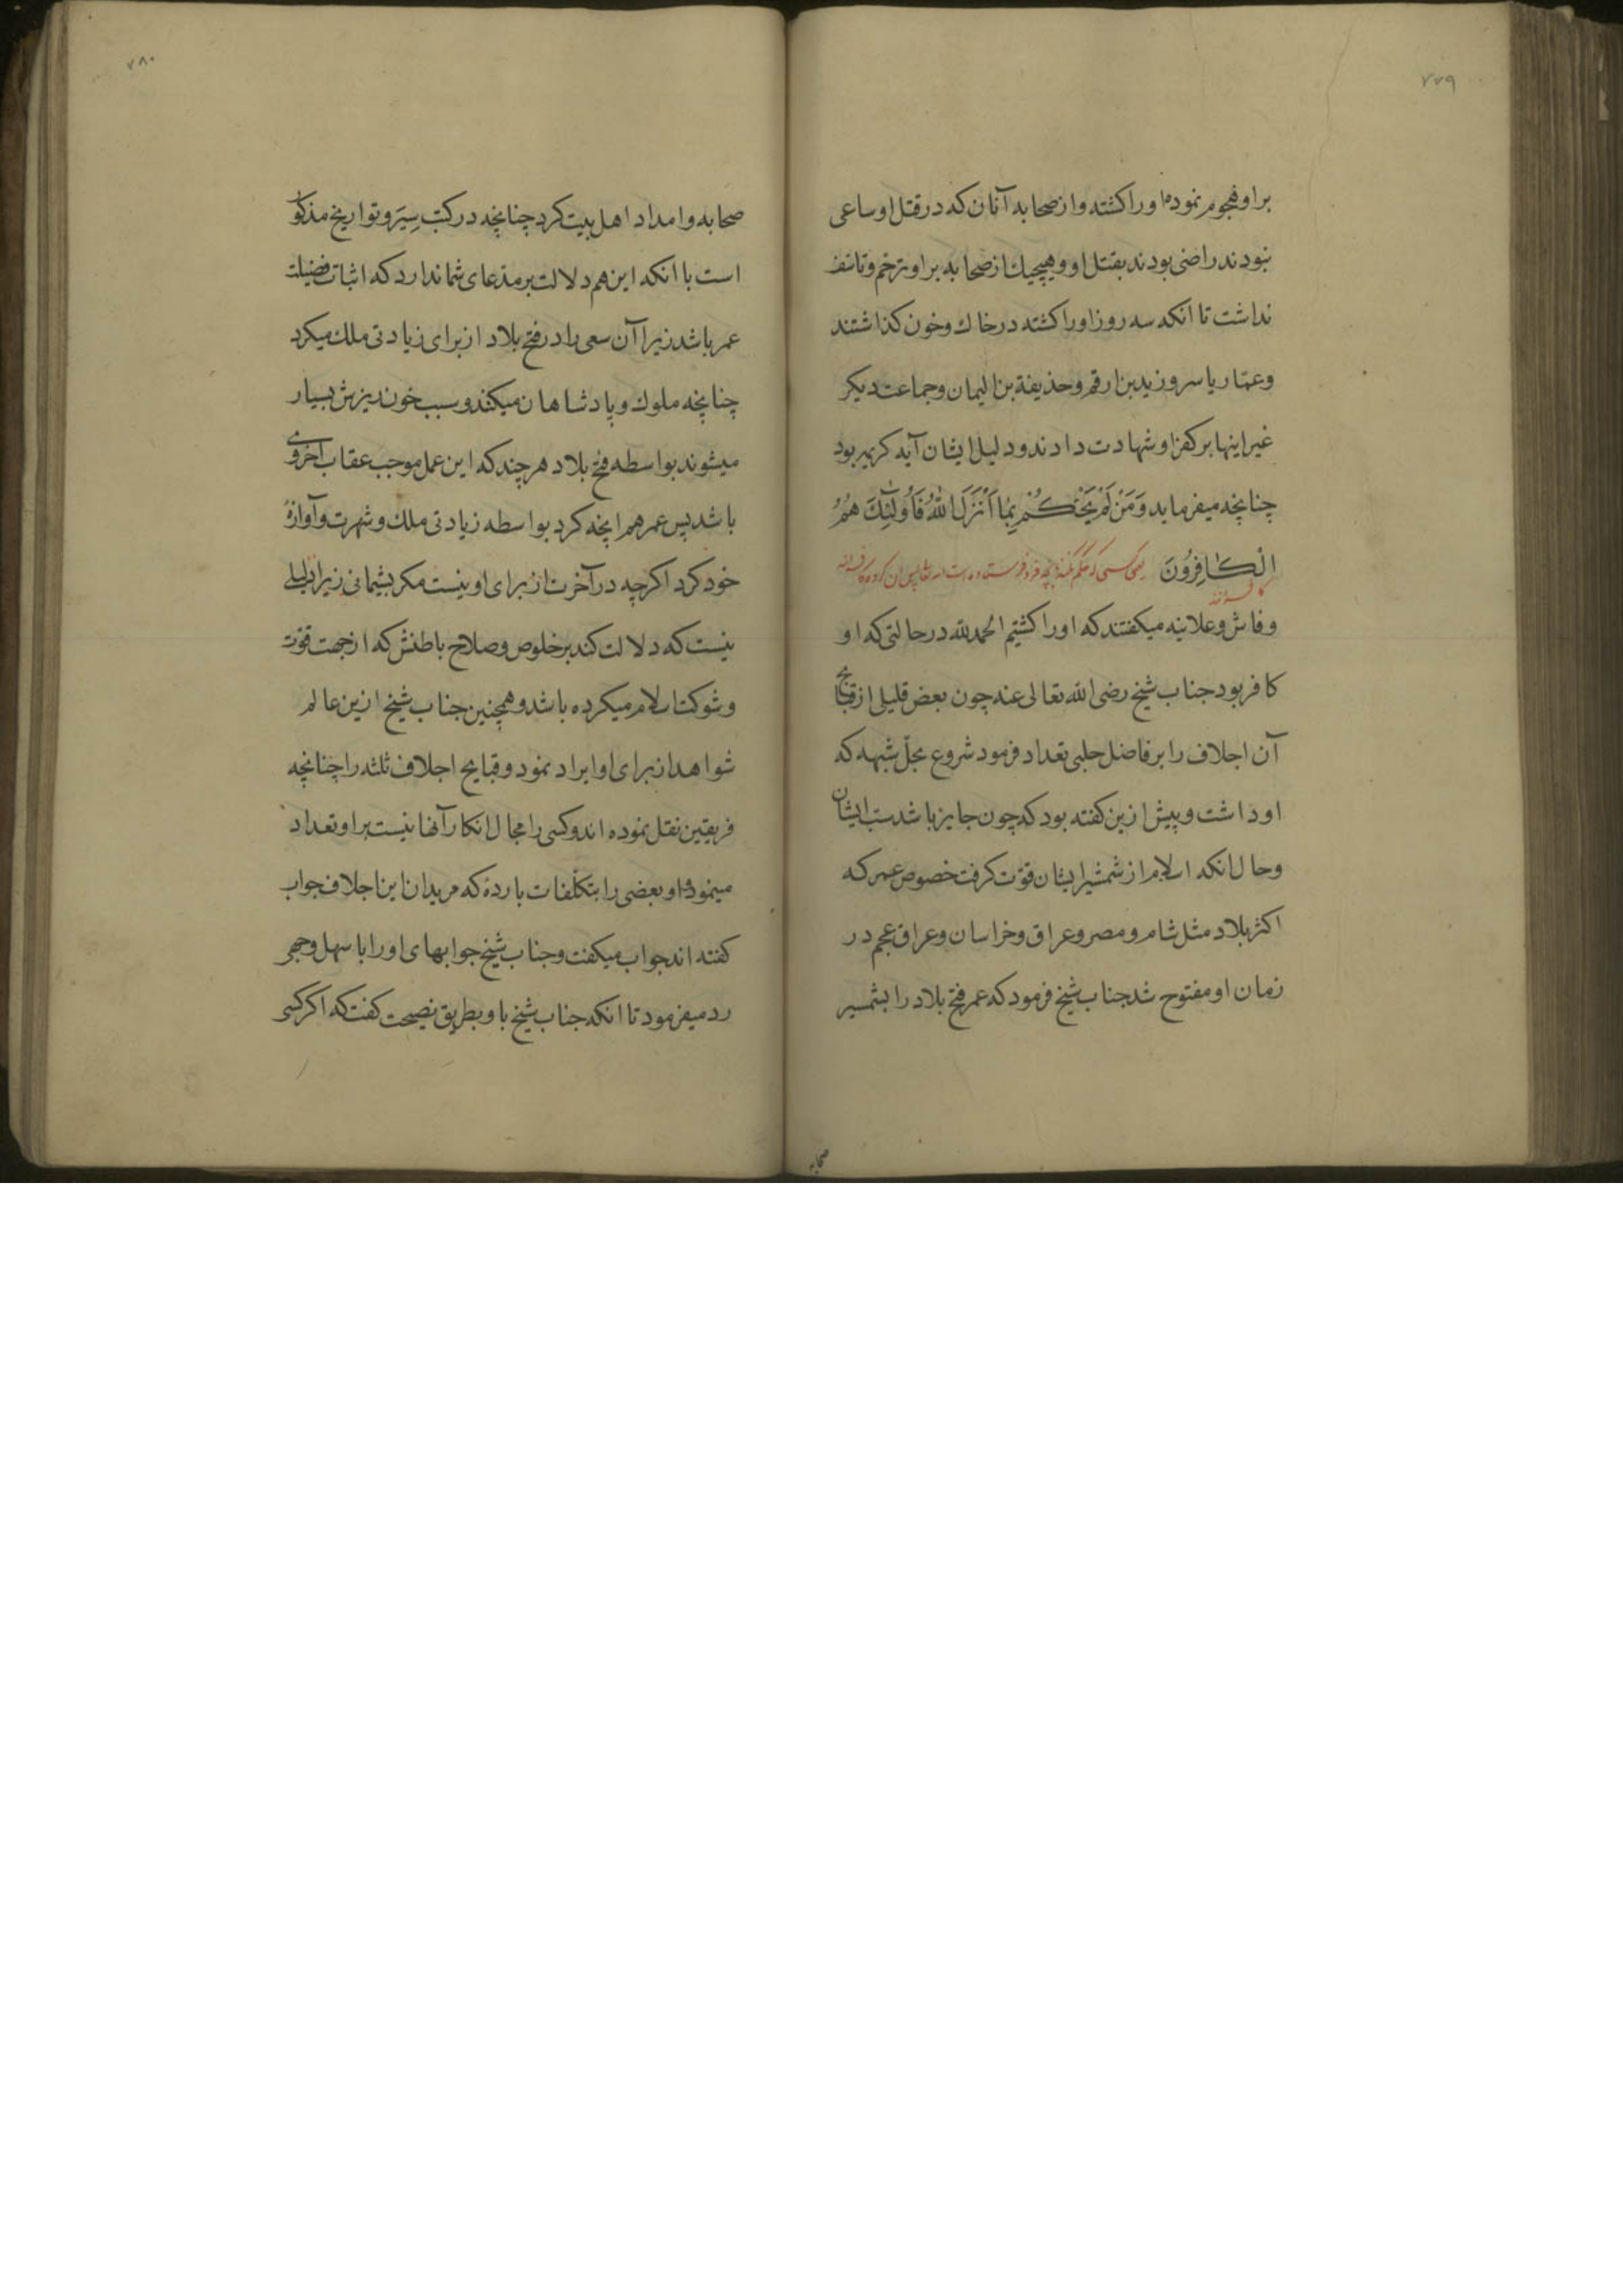 ۷۷۹
بر او هجوم نموده اورا کشتند و از صحابه آنان که در قتل او ساعی
نبودند راضی بودند بقتل او و هیچیک از صحابه بر او ترحم و تاسف
نداشت تا انکه سه روز اورا کشته در خاک و خون کذاشتند
و عمّار یاسر و زید بن ارقم و حذیفة بن الیمان و جماعت دیکر
غیر اینها بر کفر او شهادت دادند و دلیل ایشان آیه کریمه بود
چنانچه میفرماید وَمَنْ لَمْ یَحْکُمْ بِمٰا اَنْزَلَ اللّٰهُ فَاُولٰٓئِکَ هُمُ
الْکٰافِرُونَ یعنی کسی که حکم نکند بانچه فرو فرستاده است الله تعالی پس ان کروه
کافرانند
و فاش و علانیه میکفتند که اورا کشتیم الحمدلله در حالتی که او
کافر بود جناب شیخ رضی الله تعالی عنه چون بعض قلیلی از قبایح
آن اجلاف را بر فاضل حلبی تعداد فرمود شروع بحلّ شبهه که
او داشت و پیش ازین کفته بود که چون جایز باشد سبّ ایشان
و حال انکه اسلام از شمشیر ایشان قوّت کرفت خصوص عمر که
اکثر بلاد مثل شام و مصر و عراق و خراسان و عراق عجم در
زمان او مفتوح شد جناب شیخ فرمود که عمر فتح بلاد را بشمسیر
صحابه
۷۸۰
صحابه و امداد اهل بیت کرد چنانچه در کتب سِیَر و تواریخ مذکور
است با انکه این هم دلالت بر مدّعای شما ندارد که اثبات فضیلت
عمر باشد زیرا آن سعی را در فتح بلاد از برای زیادتی ملک میکرد
چنانچه ملوک و پادشاهان میکنند و سبب خون ریزش بسیار
میشوند بواسطه فتح بلاد هر چند که این عمل موجب عقاب اخروی
باشد پس عمر هم انچه کرد بواسطه زیادتی ملک و شهرت و آوازهٔ
خود کرد اکرچه در آخرت از برای او نیست مکر پشیمانی زیرا دلیلی
نیست که دلالت کند بر خلوص و صلاح باطنش که از جهت قوّت
و شوکت اسلام میکرده باشد و همچنین جناب شیخ ازین عالم
شواهد از برای او ایراد نمود و قبایح اجلاف ثلثه را چنانچه
فریقین نقل نموده اند و کسی را مجال انکار آنها نیست بر او تعداد
مینمود و او بعضی را بتکلّفات بارده که مریدان این اجلاف جواب
کفته اند جواب میکفت و جناب شیخ جوابهای او را با سهل وجهی
رد میفرمود تا انکه جناب شیخ باو بطریق نصیحت کفت که اکر کسی